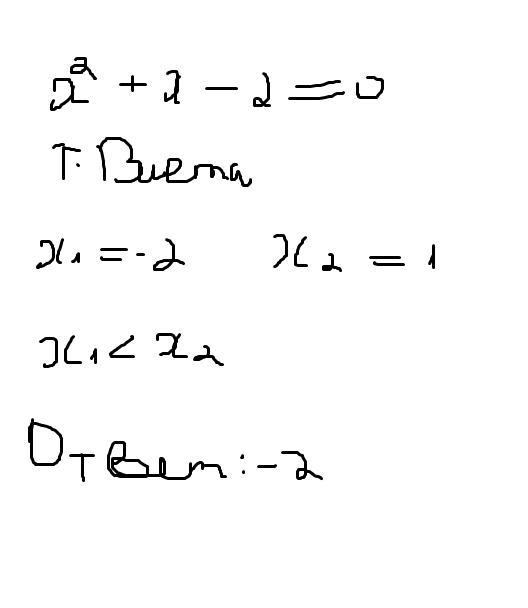 x² + x - 2 = 0
Т. Виета
x₁ = -2 x₂ = 1
x₁ < x₂
Ответ: -2